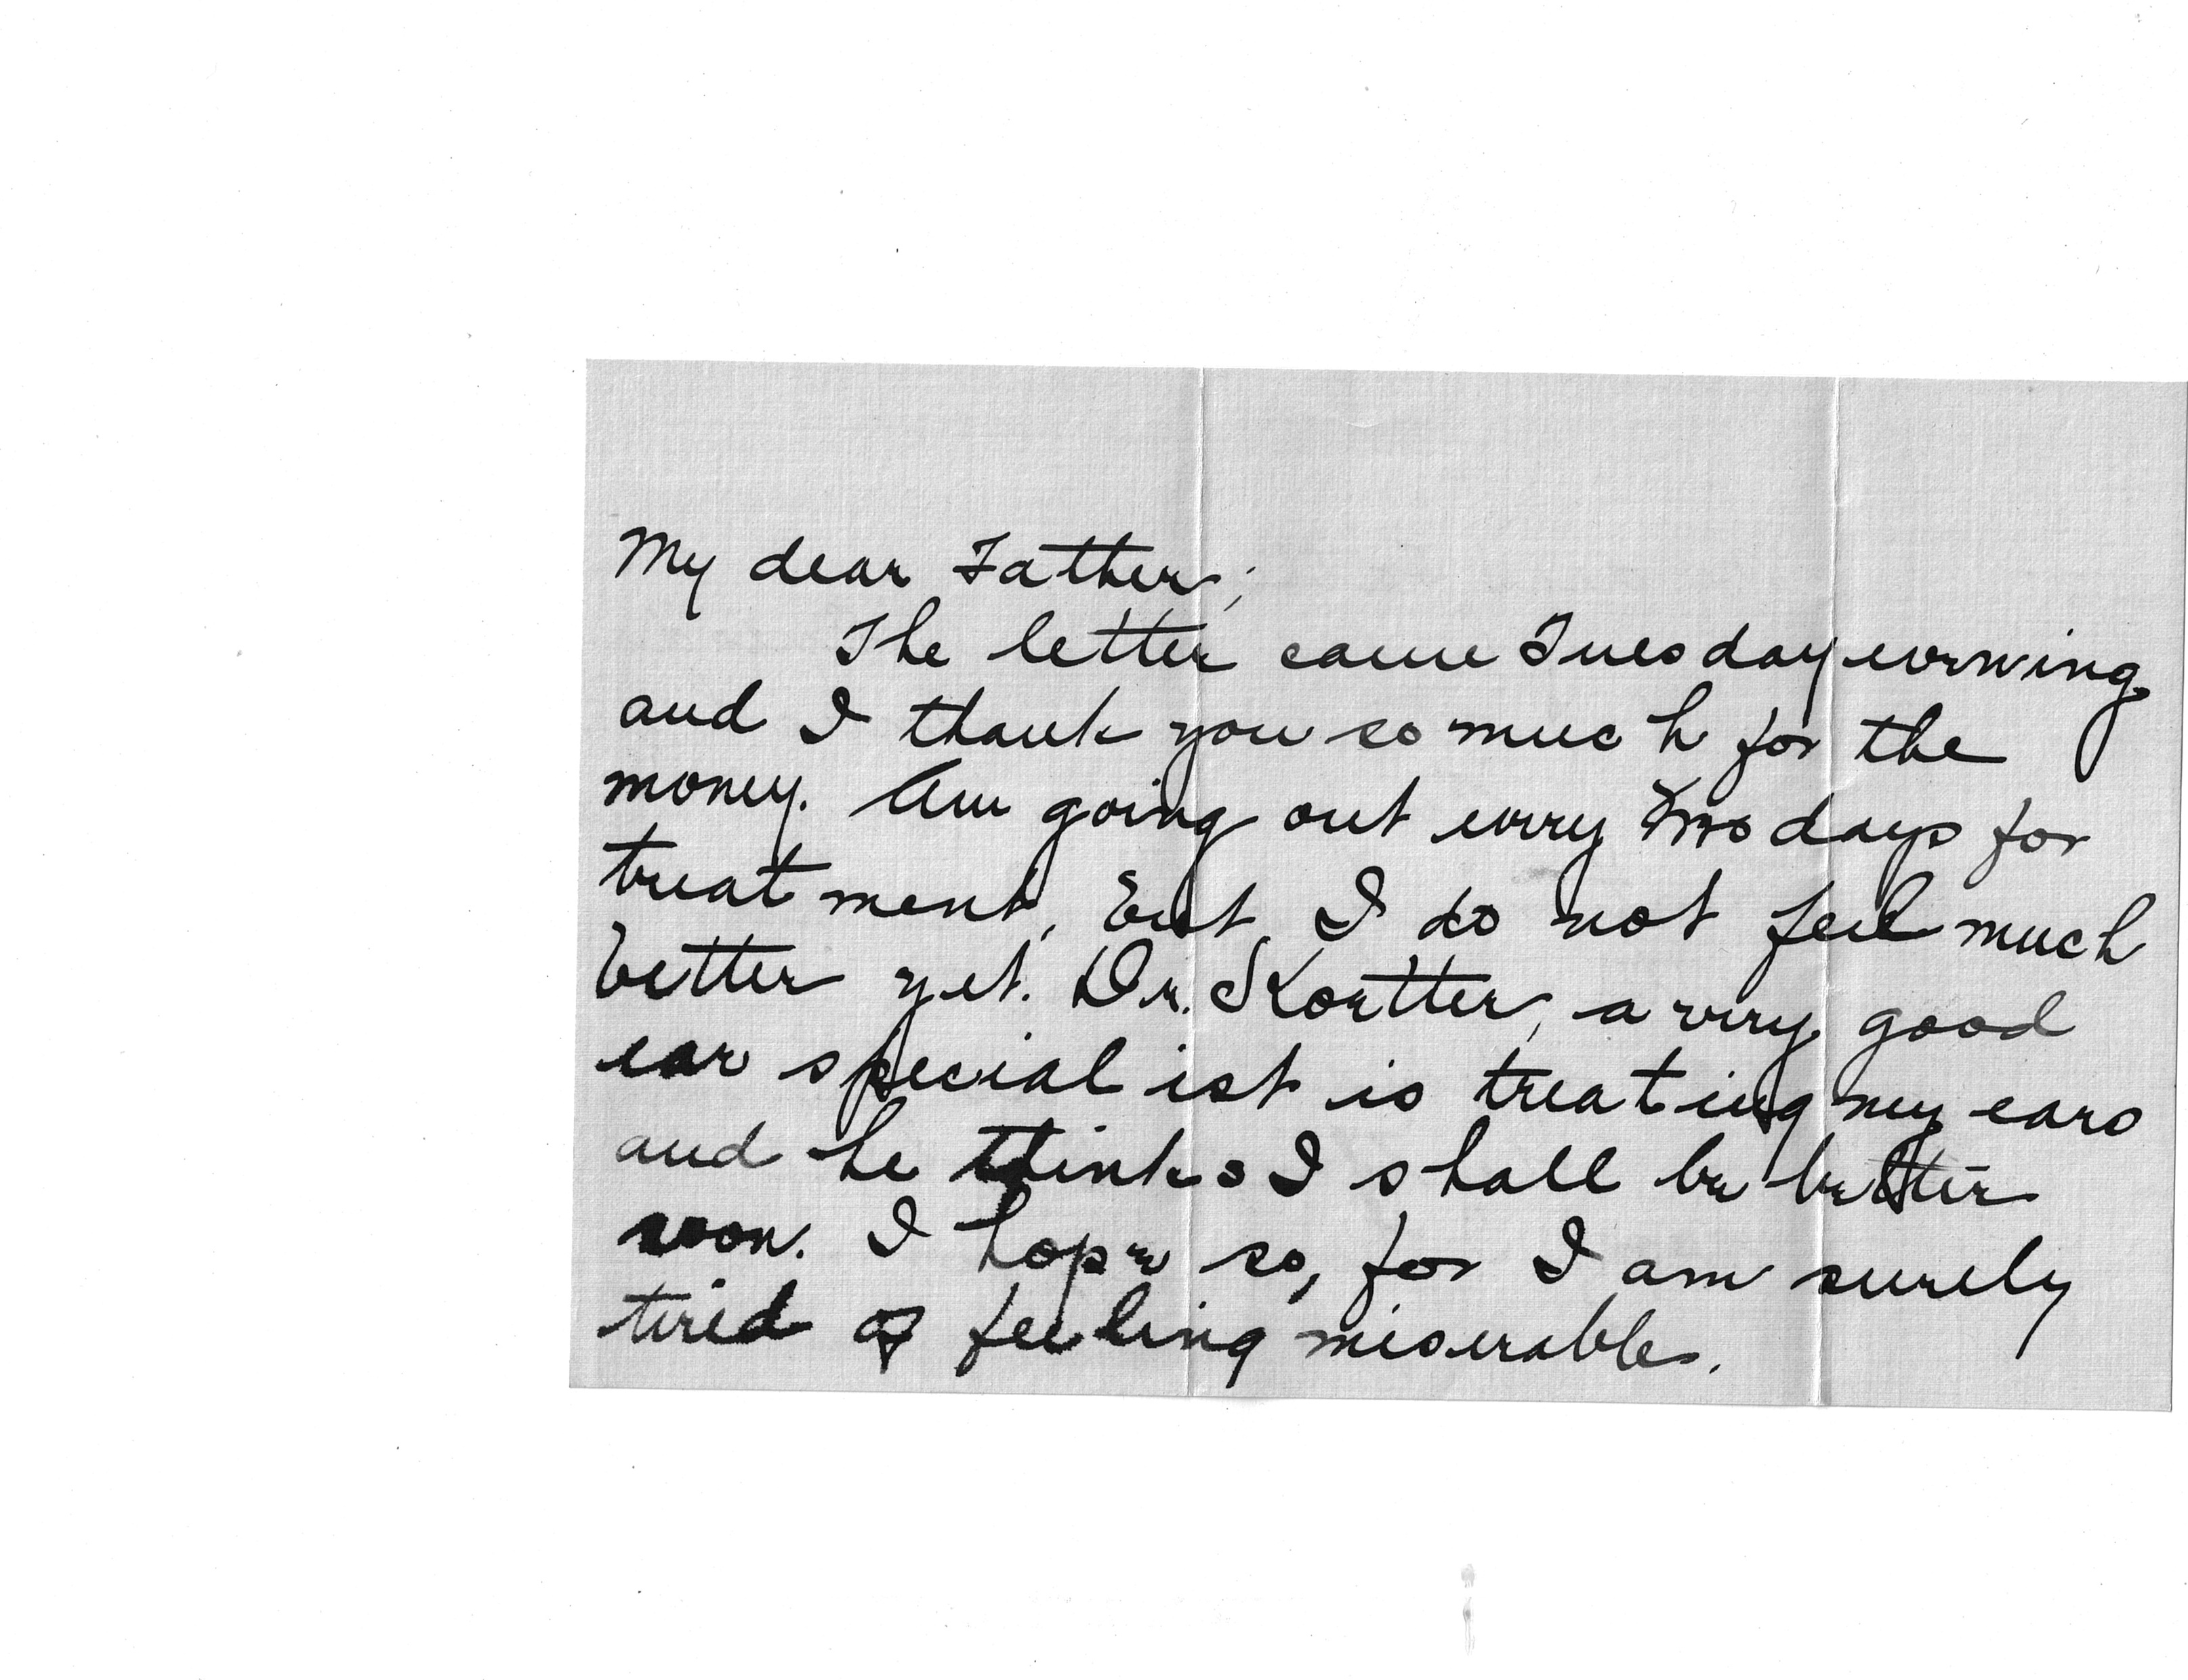 My dear Father;
The letter came Tuesday evening
and I thank you so much for the
money. Am going out every two days for
treatment, but I do not feel much
better yet. Dr. Koetter, a very good
ear specialist is treating my ears
and he thinks I shall be better
soon. I hope so, for I am surely
tired of feeling miserable.